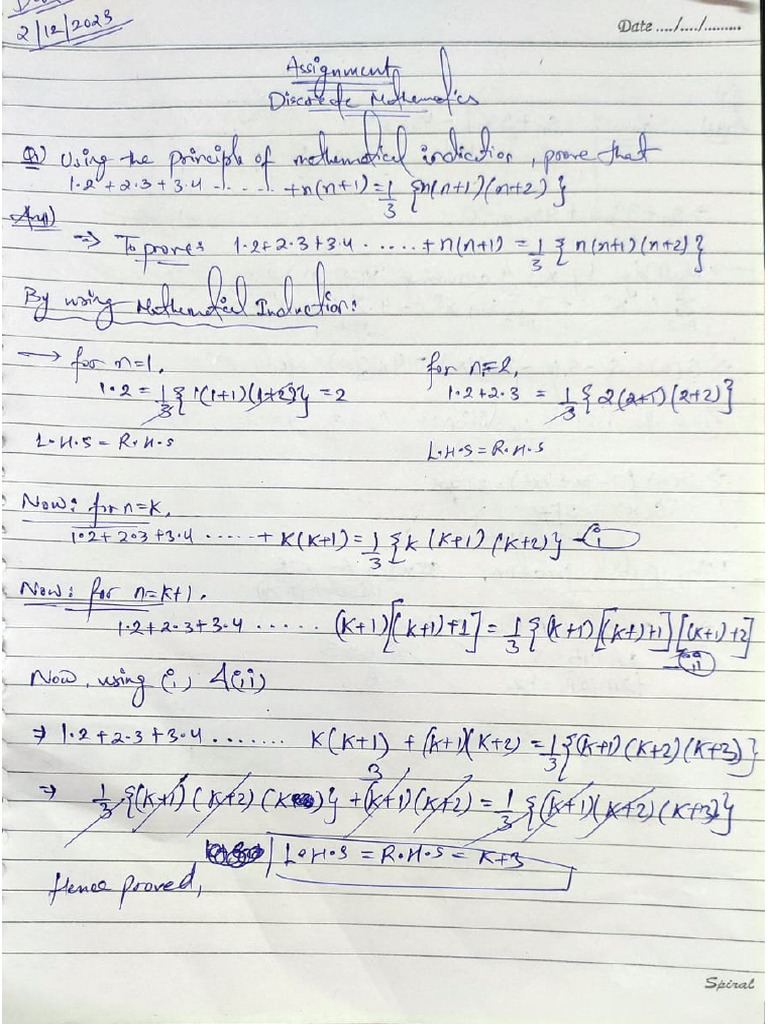 2/12/2023
Date ..../..../.........
Assignment
Discrete Mathematics
Q1) Using the principle of mathematical indication, prove that
1·2 + 2·3 + 3·4 - . . . . . + n(n+1) = 1/3 {n(n+1)(n+2)}
Ans)
⇒ To prove: 1·2+2·3+3·4 . . . . . + n(n+1) = 1/3 {n(n+1)(n+2)}
By using Mathematical Induction:
→ for n=1,
1·2 = 1/3 {1(1+1)(1+2)} = 2
L·H·S = R·H·S
for n=2,
1·2+2·3 = 1/3 {2(2+1)(2+2)}
L·H·S = R·H·S
Now: for n=k,
1·2+2·3+3·4 ...... + k(k+1) = 1/3 {k(k+1)(k+2)} — i
Now: for n=k+1,
1·2+2·3+3·4 ...... (k+1)[(k+1)+1] = 1/3 {(k+1)[(k+1)+1][(k+1)+2]
— ii
Now, using (i) & (ii)
⇒ 1·2+2·3+3·4 ....... k(k+1) + (k+1)(k+2) = 1/3 {(k+1)(k+2)(k+3)}
3
⇒ 1/3 {(k+1)(k+2)(k )} + (k+1)(k+2) = 1/3 {(k+1)(k+2)(k+3)}
L·H·S = R·H·S = k+3
Hence proved,
Spiral